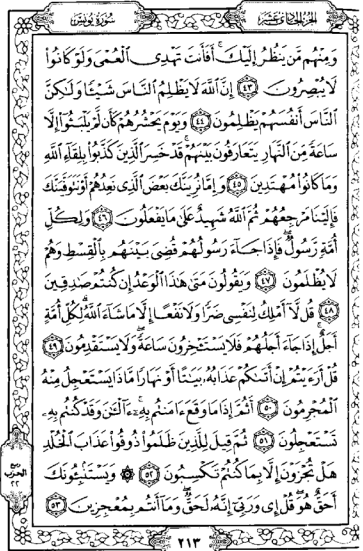 الجزء الحادي عشر
سورة يونس
وَمِنْهُم مَّن يَنظُرُ إِلَيْكَ أَفَأَنتَ تَهْدِي الْعُمْىَ وَلَوْ كَانُوا
لَا يُبْصِرُونَ ٤٣ إِنَّ اللَّهَ لَا يَظْلِمُ النَّاسَ شَيْئًا وَلَٰكِنَّ
النَّاسَ أَنفُسَهُمْ يَظْلِمُونَ ٤٤ وَيَوْمَ يَحْشُرُهُمْ كَأَن لَّمْ يَلْبَثُوا إِلَّا
سَاعَةً مِّنَ النَّهَارِ يَتَعَارَفُونَ بَيْنَهُمْ قَدْ خَسِرَ الَّذِينَ كَذَّبُوا بِلِقَاءِ اللَّهِ
وَمَا كَانُوا مُهْتَدِينَ ٤٥ وَإِمَّا نُرِيَنَّكَ بَعْضَ الَّذِي نَعِدُهُمْ أَوْ نَتَوَفَّيَنَّكَ
فَإِلَيْنَا مَرْجِعُهُمْ ثُمَّ اللَّهُ شَهِيدٌ عَلَىٰ مَا يَفْعَلُونَ ٤٦ وَلِكُلِّ
أُمَّةٍ رَّسُولٌ فَإِذَا جَاءَ رَسُولُهُمْ قُضِيَ بَيْنَهُم بِالْقِسْطِ وَهُمْ
لَا يُظْلَمُونَ ٤٧ وَيَقُولُونَ مَتَىٰ هَٰذَا الْوَعْدُ إِن كُنتُمْ صَادِقِينَ
٤٨ قُل لَّا أَمْلِكُ لِنَفْسِي ضَرًّا وَلَا نَفْعًا إِلَّا مَا شَاءَ اللَّهُ لِكُلِّ أُمَّةٍ
أَجَلٌ إِذَا جَاءَ أَجَلُهُمْ فَلَا يَسْتَـْٔخِرُونَ سَاعَةً وَلَا يَسْتَقْدِمُونَ ٤٩
قُلْ أَرَءَيْتُمْ إِنْ أَتَىٰكُمْ عَذَابُهُ بَيَٰتًا أَوْ نَهَارًا مَّاذَا يَسْتَعْجِلُ مِنْهُ
الْمُجْرِمُونَ ٥٠ أَثُمَّ إِذَا مَا وَقَعَ ءَامَنتُم بِهِ ءَآلْـَٰٔنَ وَقَدْ كُنتُم بِهِ
تَسْتَعْجِلُونَ ٥١ ثُمَّ قِيلَ لِلَّذِينَ ظَلَمُوا ذُوقُوا عَذَابَ الْخُلْدِ
هَلْ تُجْزَوْنَ إِلَّا بِمَا كُنتُمْ تَكْسِبُونَ ٥٢ ۞ وَيَسْتَنۢبِـُٔونَكَ
أَحَقٌّ هُوَ قُلْ إِي وَرَبِّي إِنَّهُ لَحَقٌّ وَمَا أَنتُم بِمُعْجِزِينَ ٥٣
ربع
الحزب
٢٢
٢١٣